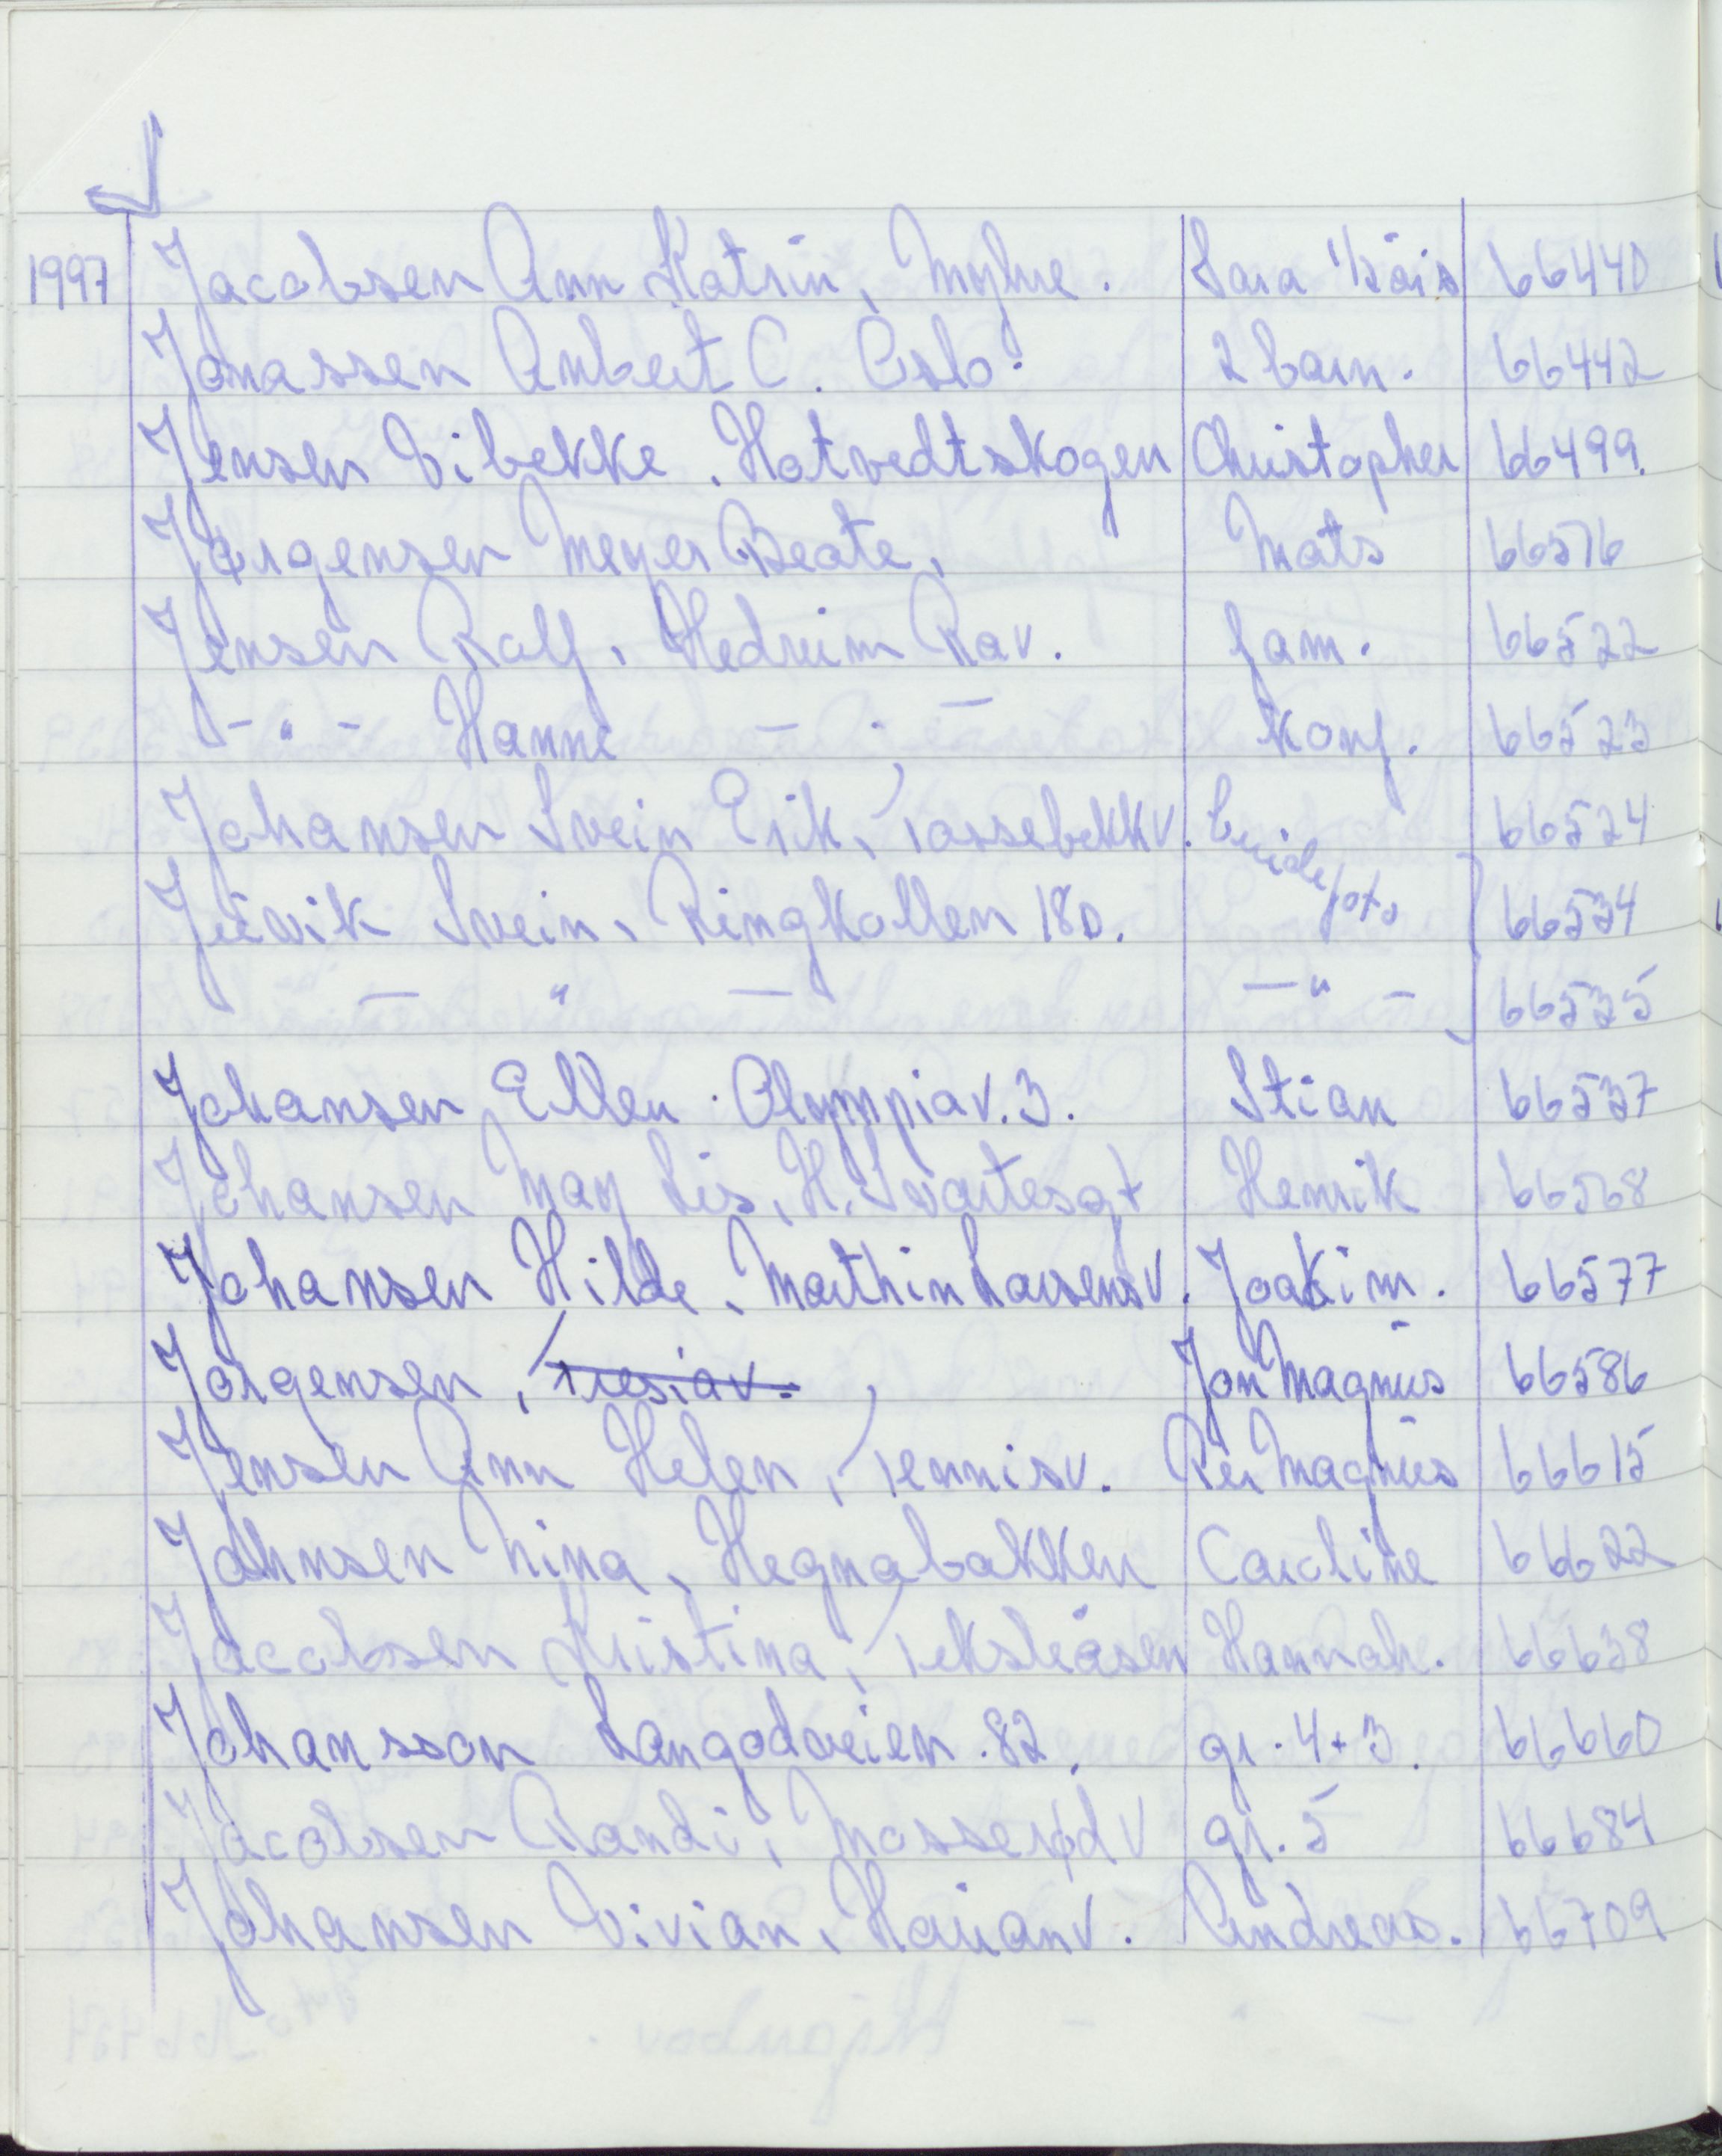 J
1997 Jacobsen Ann Katrin, Myhre. Sara 1/2 års 66440
Jonassen Anbert C. Oslo. 2 barn. 66442
Jensen Vibekke. Hotvedtskogen Christopher 66499.
Jørgensen Meyer Beate, Mats 66516
Jensen Ralf, Hedrum Rav. fam. 66522
- " - Hanne - " - Konf. 66523
Johansen Svein Erik, Tossebekkv. brudefoto 66524
Juvik Svein, Ringkollen 18D. 66534
- " - - " - 66535
Johansen Ellen. Olympiav. 3. Stian 66537
Johansen May Lis, H. Svartesgt Henrik 66568
Johansen Hilde, Marthin Larsensv. Joakim. 66577
Jørgensen, Tresiav. Jon Magnus 66586
Jensen Ann Helen, Tennisv. Per Magnus 66615
Johnsen Nina, Hegnabakken Caroline 66622
Jacobsen Kristina, Teksleåsen Hannah. 66638
Johansson Langodveien. 82, gr. 4+3. 66660
Jacobsen Randi, Mosserødv gr. 5 66684
Johansen Vivian, Hauanv. Andreas. 66709